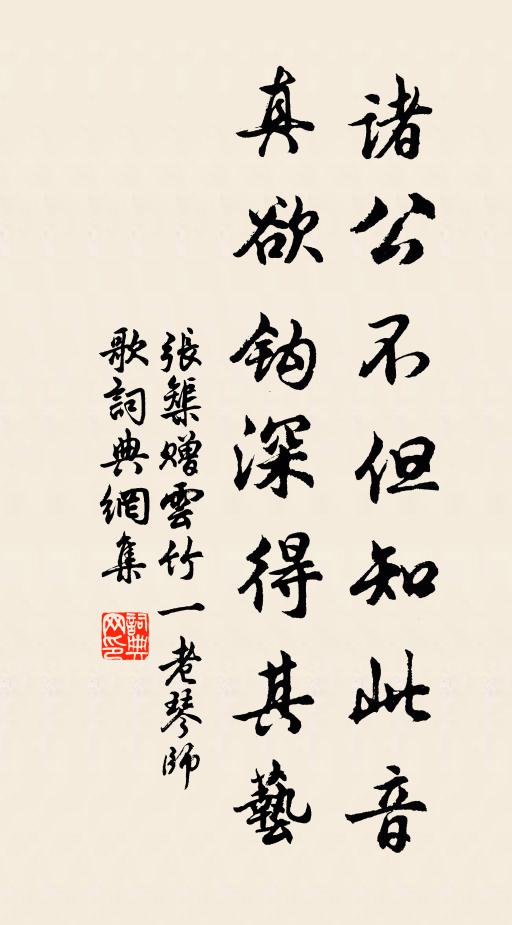 諸公不但知此音
真欲鈎深得其藝
張榘贈雲竹一老琴師
歌詞典網集
詞典网印